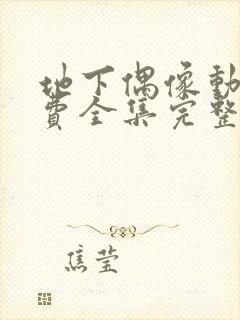 地下偶像動
費全集完整
焦莹